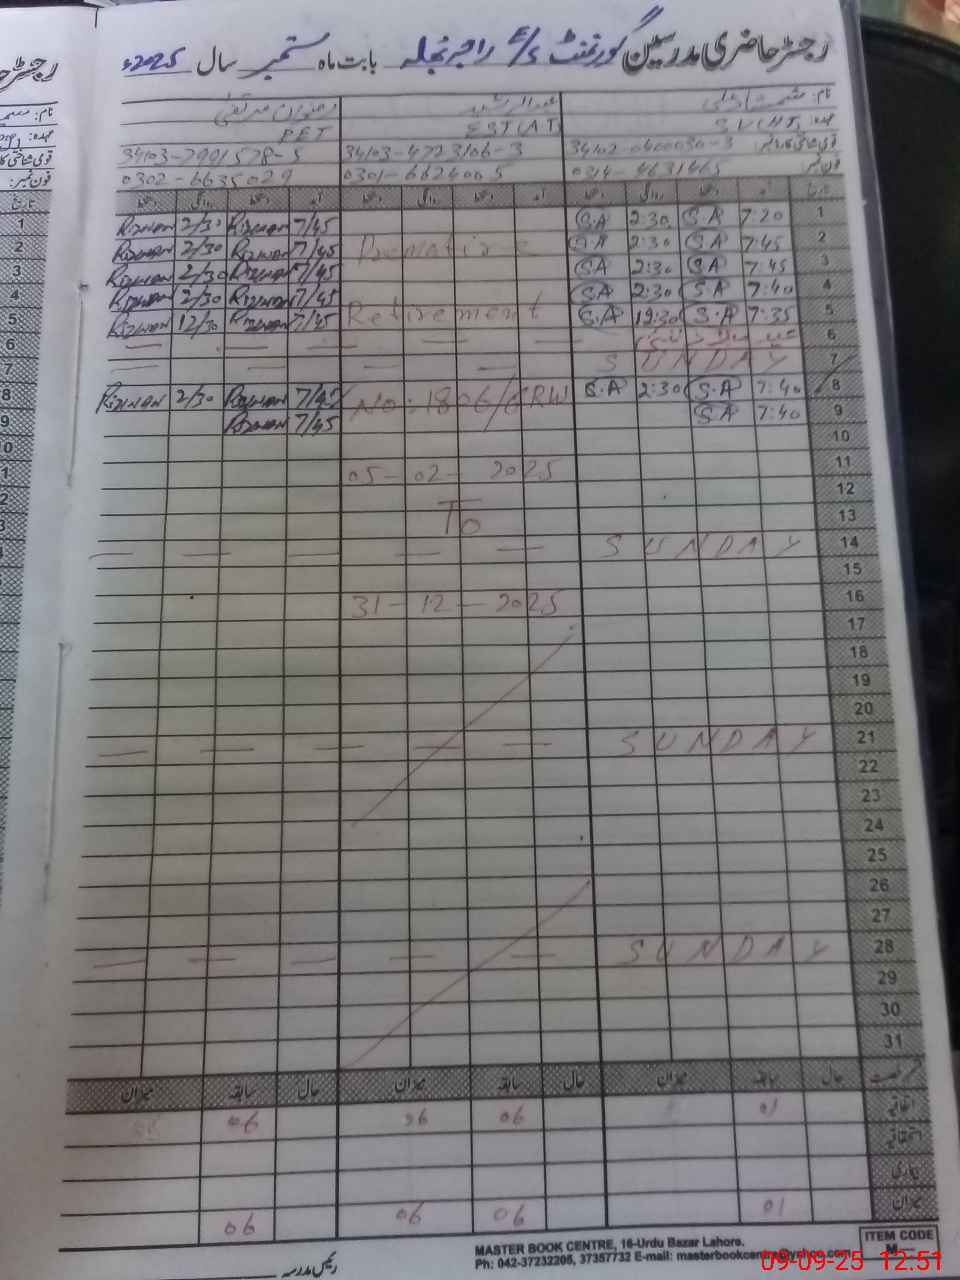 رجسٹر حاضری مدرسین گورنمنٹ E/S راجہ نجلہ بابت ماہ ستمبر سال 2025ء
نام: شمشاد علی عبدالرشید رضوان مرتضیٰ
عہدہ: EST(AT) PET
قومی شناختی کارڈ نمبر: 34102-0400030-3 34103-4723106-3 34103-7901578-5
فون نمبر: 0314-4631465 0301-6624005 0302-6635029
تاریخ آمد دستخط روانگی دستخط آمد دستخط روانگی دستخط آمد دستخط روانگی دستخط
1 7:20 S.A 2:30 S.A 7/45 Rizwan 2/30 Rizwan
2 7:45 S.A 2:30 S.A 7/45 Rizwan 2/30 Rizwan
Prematire
3 7:45 S.A 2:30 S.A 7/45 Rizwan 2/30 Rizwan
4 7:40 S.A 2:30 S.A 7/45 Rizwan 2/30 Rizwan
5 7:35 S.A 12:30 S.A Retirement 7/45 Rizwan 12/30 Rizwan
6 عید میلاد النبی
7 SUNDAY
8 7:40 S.A 2:30 S.A No: 1806/GRW 7/45 Rizwan 2/30 Rizwan
9 7:40 S.A 7/45 Rizwan
10
11 05-02-2025
12
13 To
14 SUNDAY
15
16 31-12-2025
17
18
19
20
21 SUNDAY
22
23
24
25
26
27
28 SUNDAY
29
30
31
حال سابقہ میزان حال سابقہ میزان حال سابقہ میزان
اتفاقیہ 01 06 06 06
استحقاقیہ
بیماری
میزان 01 06 06 06
رئیس مدرسہ
MASTER BOOK CENTRE, 16-Urdu Bazar Lahore.
Ph: 042-37232205, 37357732 E-mail: masterbookcentre@yahoo.com
ITEM CODE
M—
09-09-25 12:51